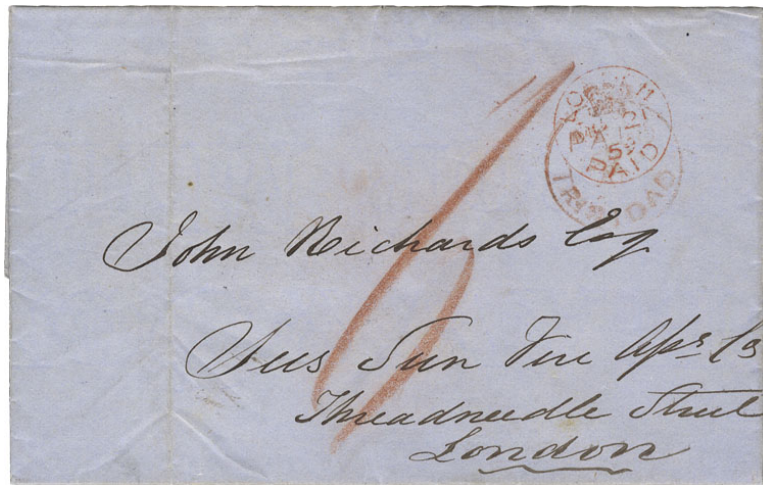 6
PAID
TRINIDAD
John Richards Esq
Sun Fire
Threadneedle Street
London